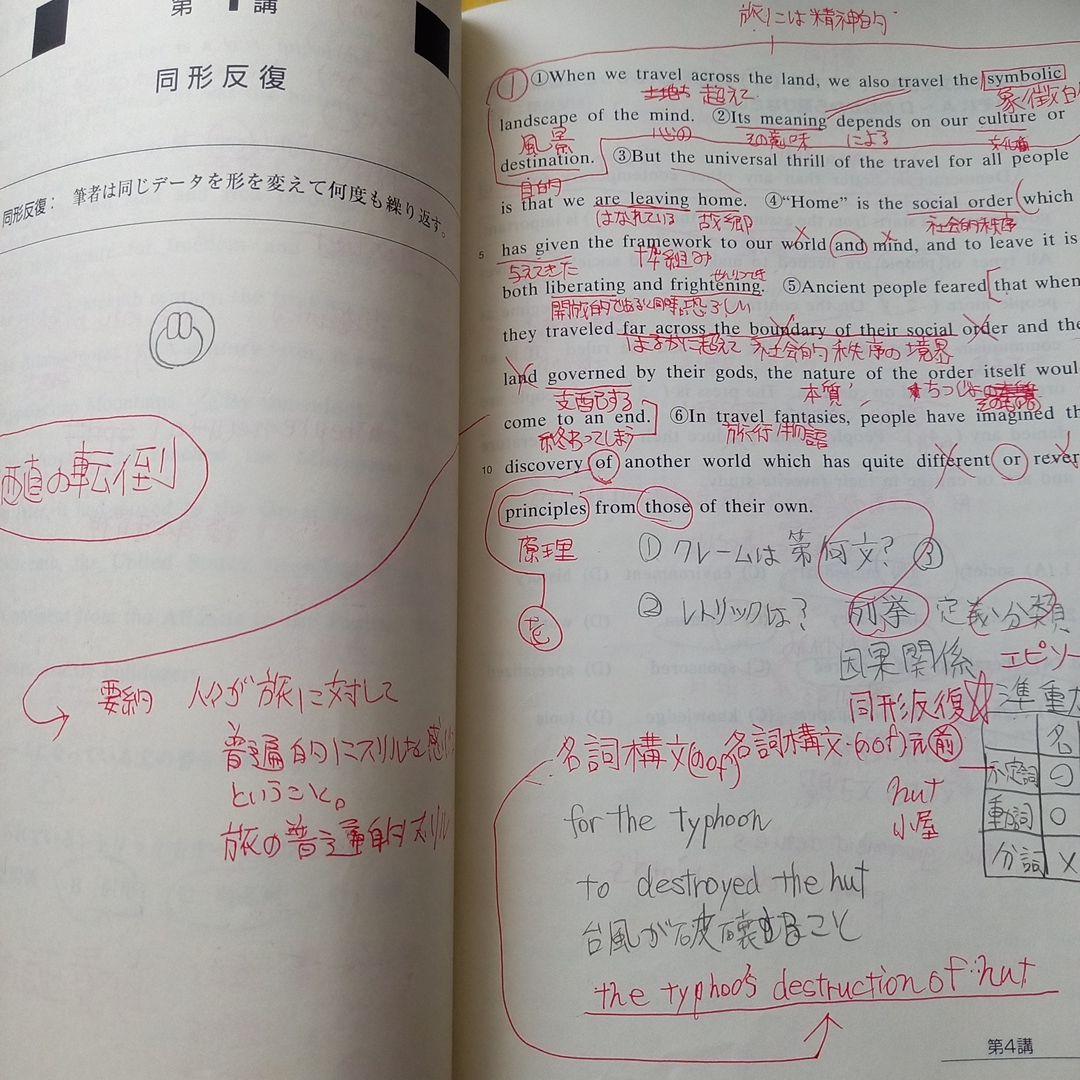 第4講
同形反復
同形反復： 筆者は同じデータを形を変えて何度も繰り返す。
の転倒
要約 人々が旅に対して
普遍的にスリルを感
ということ。
旅の普遍的スリル
旅には精神的
① ①When we travel across the land, we also travel the symbolic
土地を 超えて
象徴的
landscape of the mind. ②Its meaning depends on our culture or
風景 心の その意味 による 文化
destination. ③But the universal thrill of the travel for all people
目的
is that we are leaving home. ④“Home” is the social order (which
はなれている 故郷 社会的秩序
5 has given the framework to our world and mind, and to leave it is
与えてきた 枠組み
both liberating and frightening. ⑤Ancient people feared [that when
開放的であると同時に恐ろしい
they traveled far across the boundary of their social order and the
はるかに超えて 社会的秩序の境界
land governed by their gods, the nature of the order itself would
支配する 本質
come to an end.] ⑥In travel fantasies, people have imagined th
終わってしまう 旅行物語
10 discovery of another world which has quite different or rever
principles from those of their own.
原理
を
① フレームは第何文? ③
② レトリックは? 列挙 定義 分類
因果関係 エピソー
同形反復
名詞構文(のof) 名詞構文・(のof)元前
名
不定詞 ○
動詞 ○
分詞 ×
hut
小屋
for the typhoon
to destroyed the hut
台風が破壊すること
the typhoo's destruction of hut
第4講